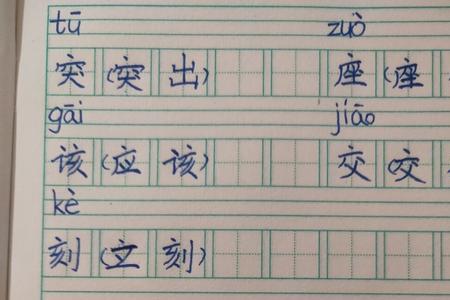 tū zuò
突(突出) 座(座
gāi jiāo
该(应该) 交(交
kè
刻(立刻)